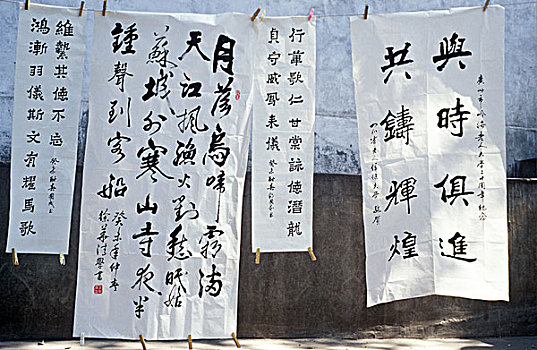 與時俱進
共鑄輝煌
行葦歌仁甘棠詠德潛龍
貞守威鳳來儀
月落烏啼霜滿
天江楓漁火對愁眠姑
蘇城外寒山寺夜半
鍾聲到客船
癸未年仲冬
維縶其德不忘
鴻漸羽儀斯文有耀馬歌